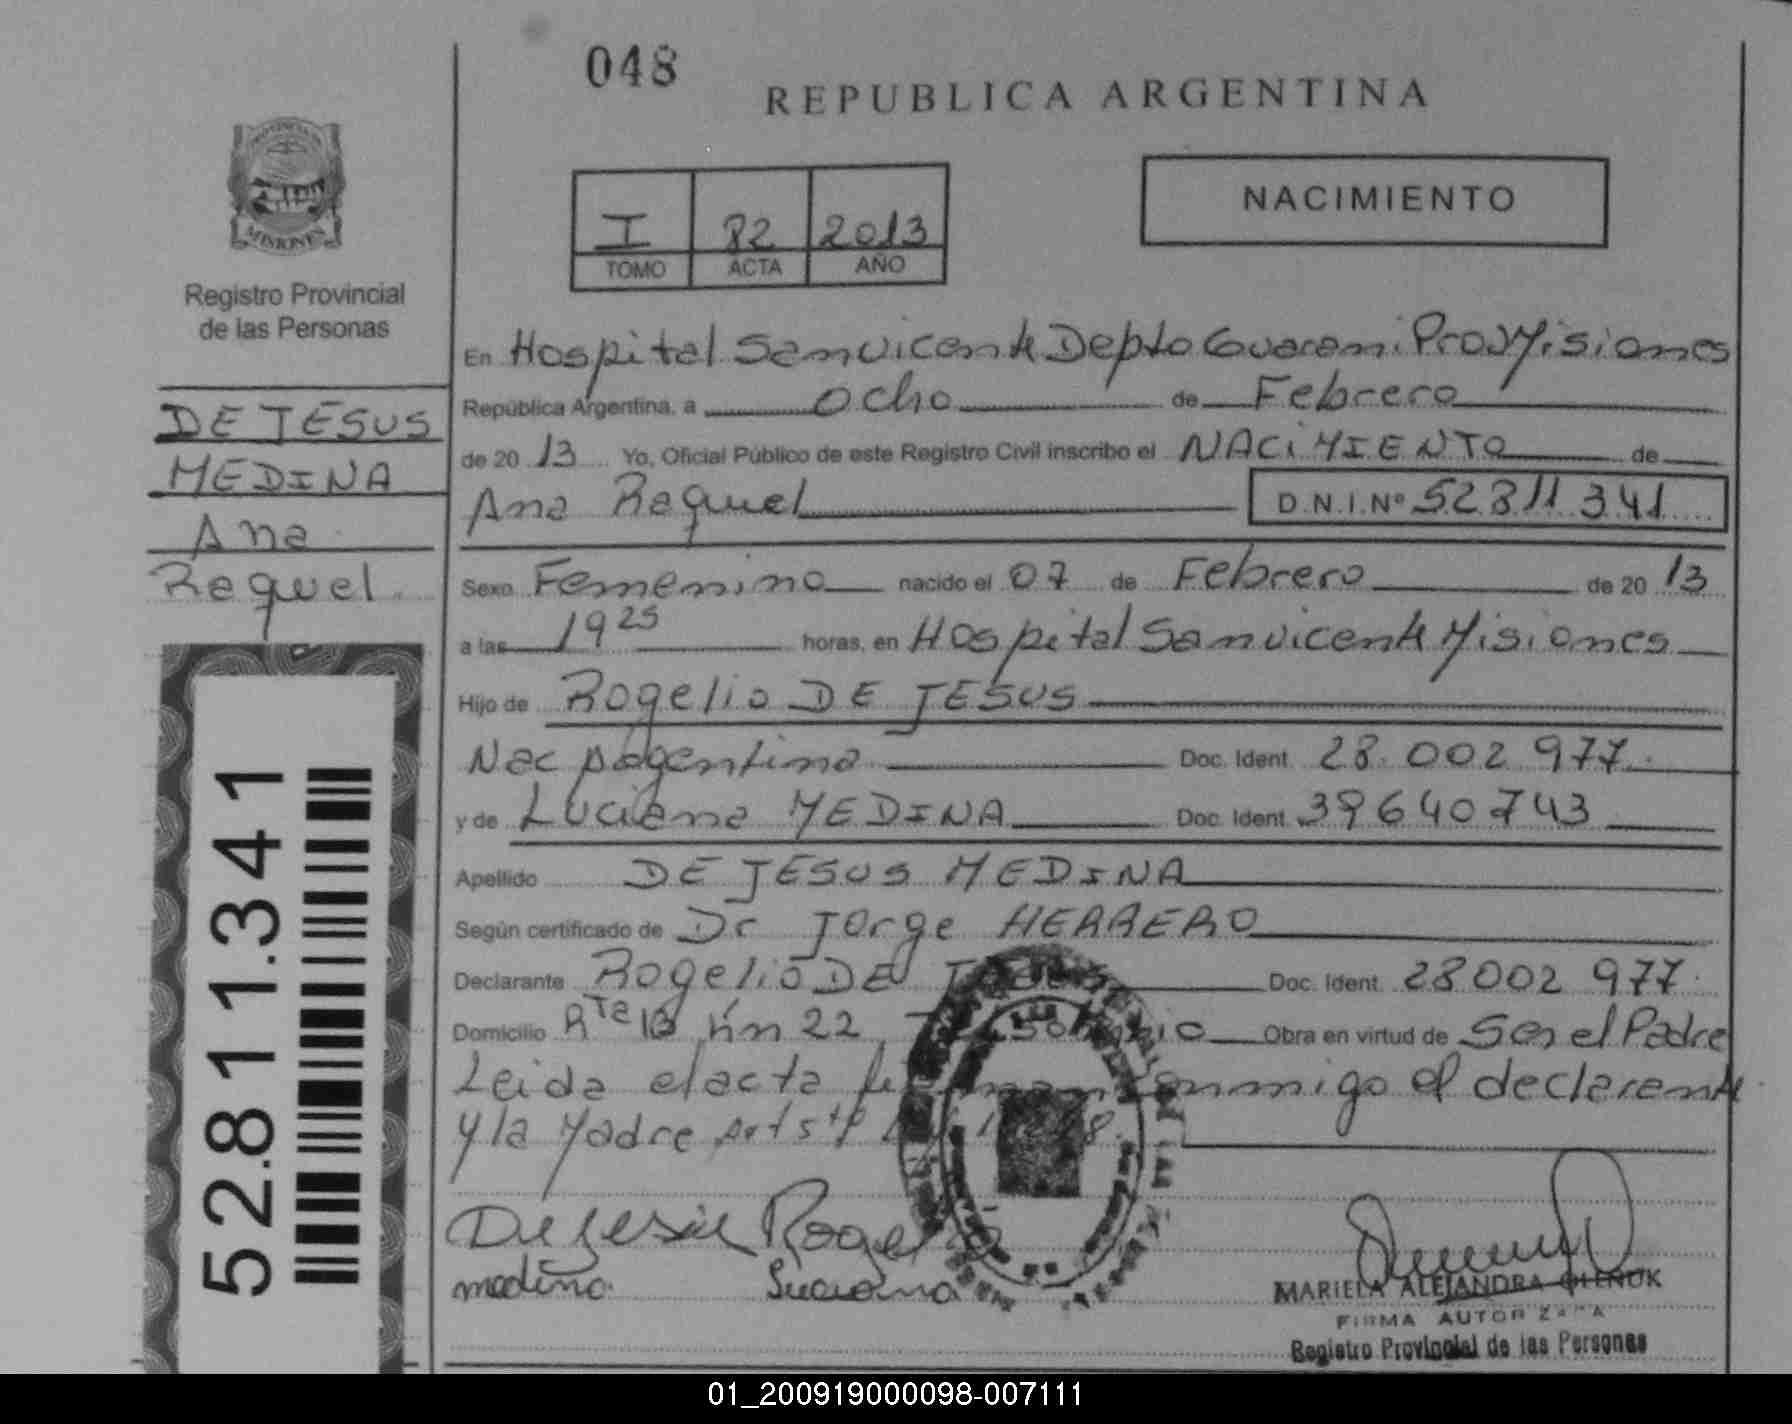 048
REPUBLICA ARGENTINA
PROVINCIA DE
MISIONES
Registro Provincial
de las Personas
DE JESUS
MEDINA
Ana
Raquel.
52.811.341
I 82 2013
TOMO ACTA AÑO
NACIMIENTO
En Hospital San vicente Depto Guarani Prov Misiones
República Argentina, a ocho de Febrero
de 20 13 Yo, Oficial Público de este Registro Civil inscribo el NACIMIENTO de
Ana Raquel D.N.I.Nº 52 811 341
Sexo Femenino nacido el 07 de Febrero de 20 13
a las 19 25 horas, en Hospital San vicente Misiones
Hijo de Rogelio DE JESUS
Nac Argentina Doc. Ident. 28.002 977.
y de Luciana MEDINA Doc. Ident. 39640743
Apellido DE JESUS MEDINA
Según certificado de Dr Jorge HERRERO
Declarante Rogelio DE JESUS Doc. Ident. 28002 977.
Domicilio Rta 13 Km 22 Obra en virtud de Ser el Padre
Leida el acta firman conmigo el declarante
y la Madre
De Jesus Rogelio
medina Luciana
MARIELA ALEJANDRA OLENUK
FIRMA AUTORIZADA
Registro Provincial de las Personas
01_200919000098-007111